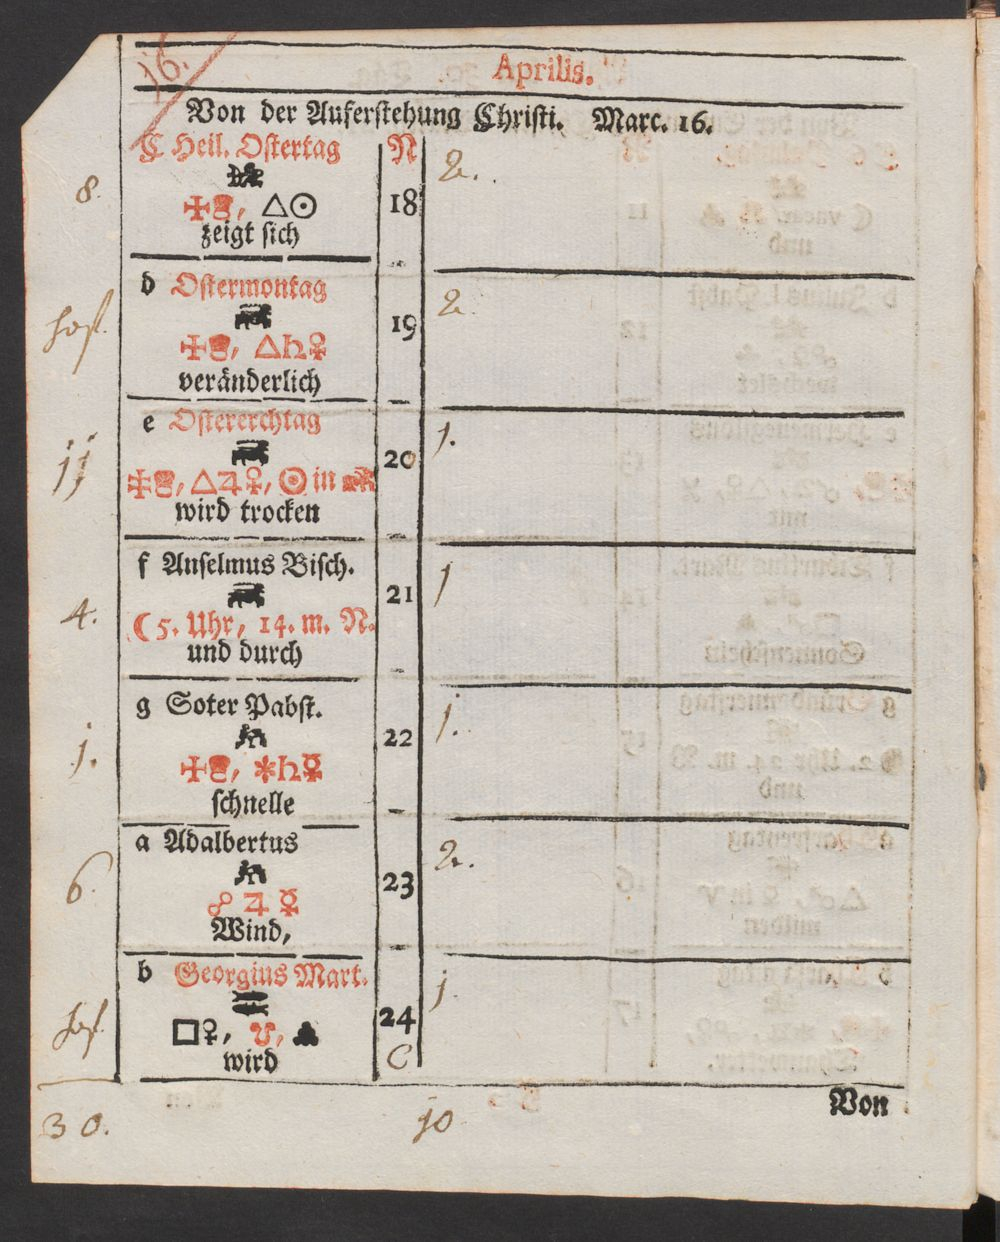 16.
Aprilis.
Von der Auferstehung Christi. Marc. 16.
C Heil. Ostertag N 2.
8.
18
zeigt sich
d Ostermontag 2
19
veränderlich
e Ostererchtag 1.
20
☉ in
wird trocken
f Anselmus Bisch.
21 1
4.
☾ 5. Uhr, 14. m. N.
und durch
g Soter Pabst.
22 1.
1.
schnelle
a Adalbertus 2.
23
6
Wind,
b Georgius Mart.
24 1
wird C
Von
30. 10